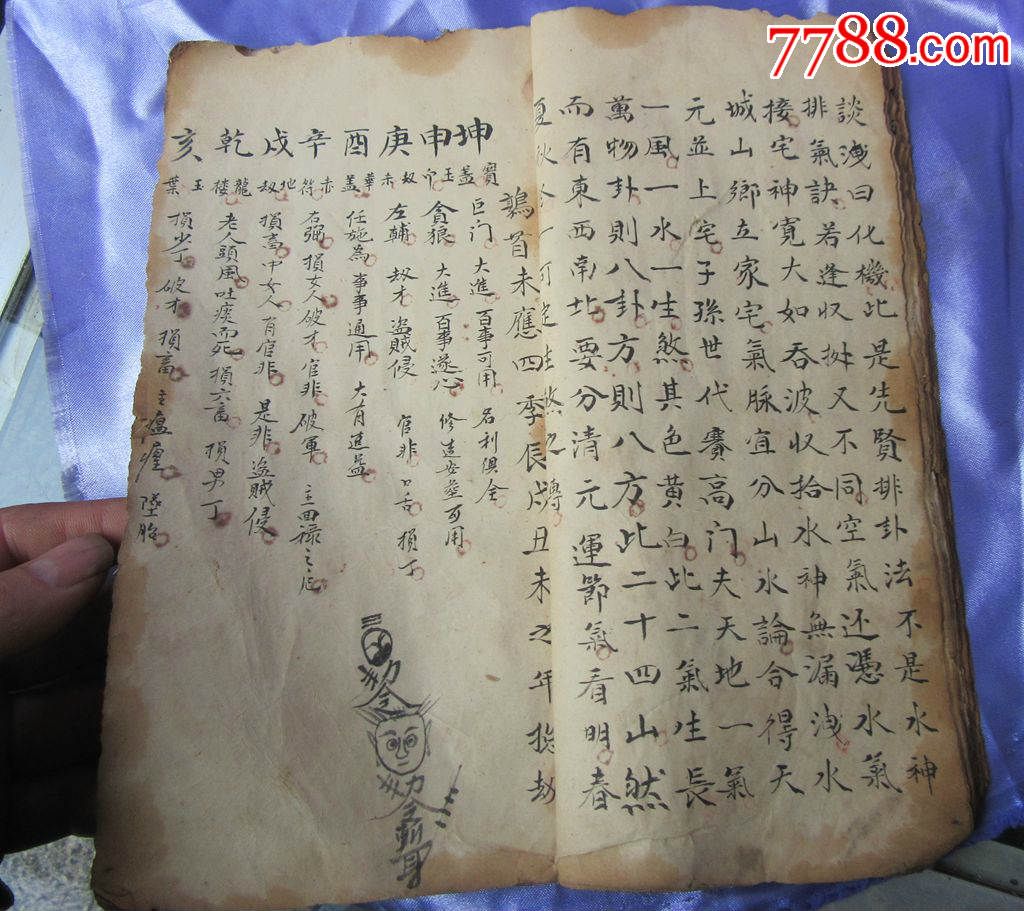 7788.com
談洩曰化機此是先賢排卦法不是水神
排氣訣若逢収撥又不同空氣还憑水氣
接宅神寬大如吞波収拾水神無漏洩水
城山鄉立家宅氣脉宜分山水論合得天
元並上宅子孫世代賽高门夫天地一氣
一風一水一生煞其色黃白比二氣生長
萬物卦則八卦方則八方比二十四山然
而有東西南北要分清元運節氣看明春
夏秋冬
鶉首未應四季辰戍丑未之年
坤 寶盖 巨门 大進 百事可用 名利俱全
申 玉 貪狼 大進 百事遂心 修造安塟可用
庚 刼 左輔 刼才 盜賊侵 官非 口舌 損丁
酉 華盖 任施為 事事通用 大有進益
辛 赤符 右弼 損女人 破才 官非 破軍 主回祿之厄
戌 地刼 損畜 中女人 有官非 是非 盜賊侵
乾 龍楼 老人頭風吐痰而死 損六畜 損男丁
亥 玉葉 損少丁 破才 損畜 主瘟瘟 墜胎